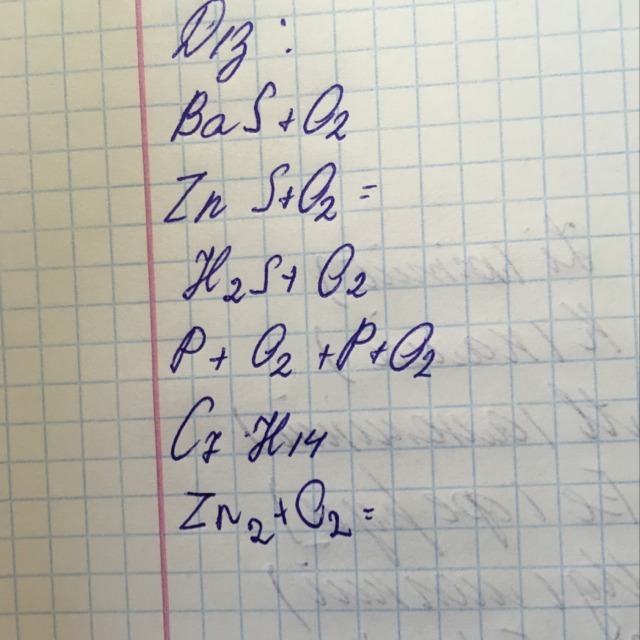 D13:
BaS+O2
Zn S+O2 =
H2S+ O2
P + O2 +P+O2
C7 H14
Zn2+O2 =